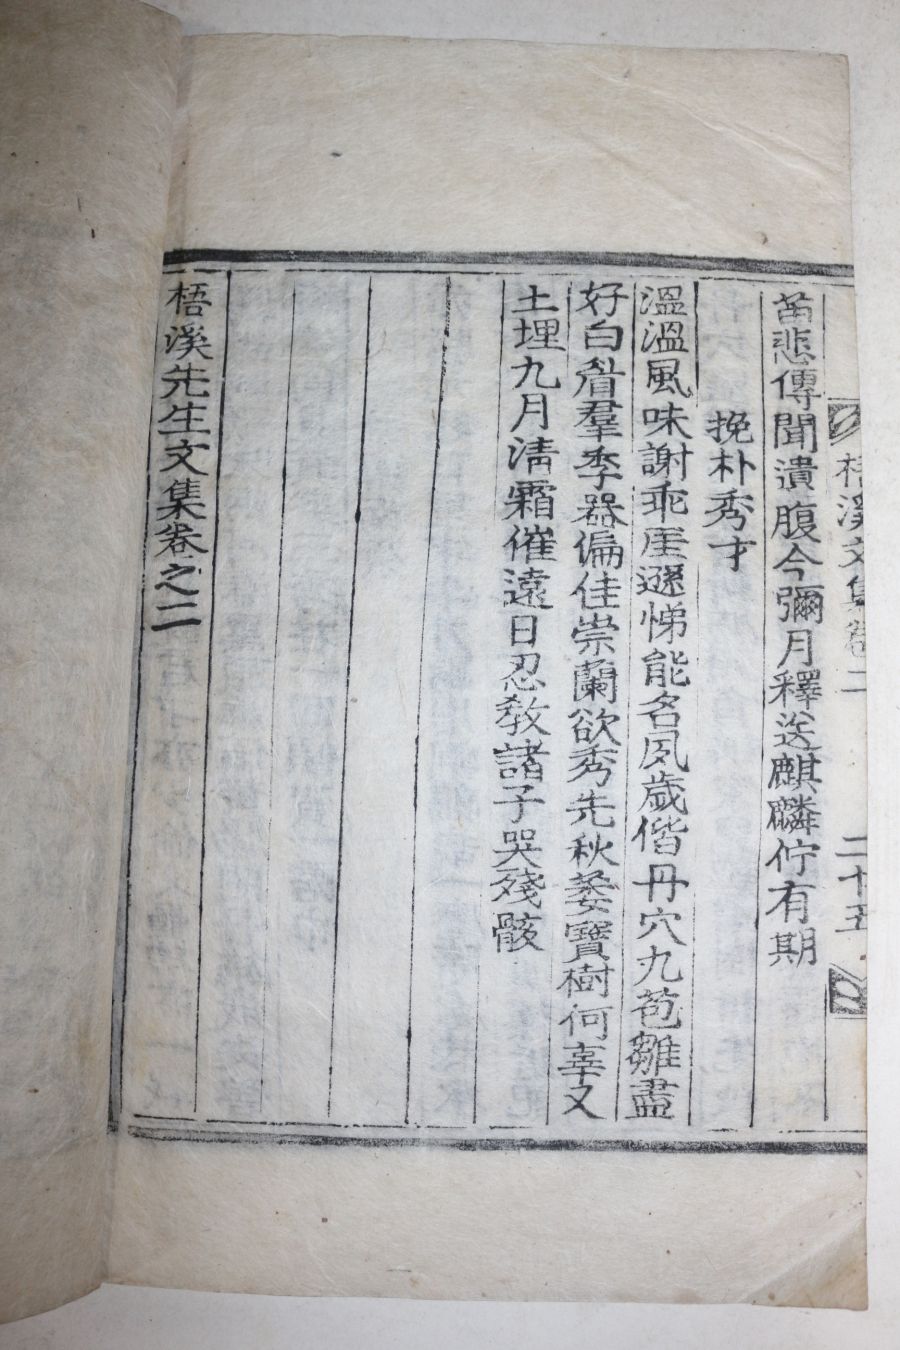 梧溪文集卷二 二十五
苗悲傳聞遺腹今彌月釋送麒麟佇有期
挽朴秀才
溫溫風味謝乖厓遜悌能名夙歲偕丹穴九苞雛盡
好白眉羣季器偏佳崇蘭欲秀先秋萎寶樹何辜又
土埋九月淸霜催遠日忍敎諸子哭殘骸
梧溪先生文集卷之二